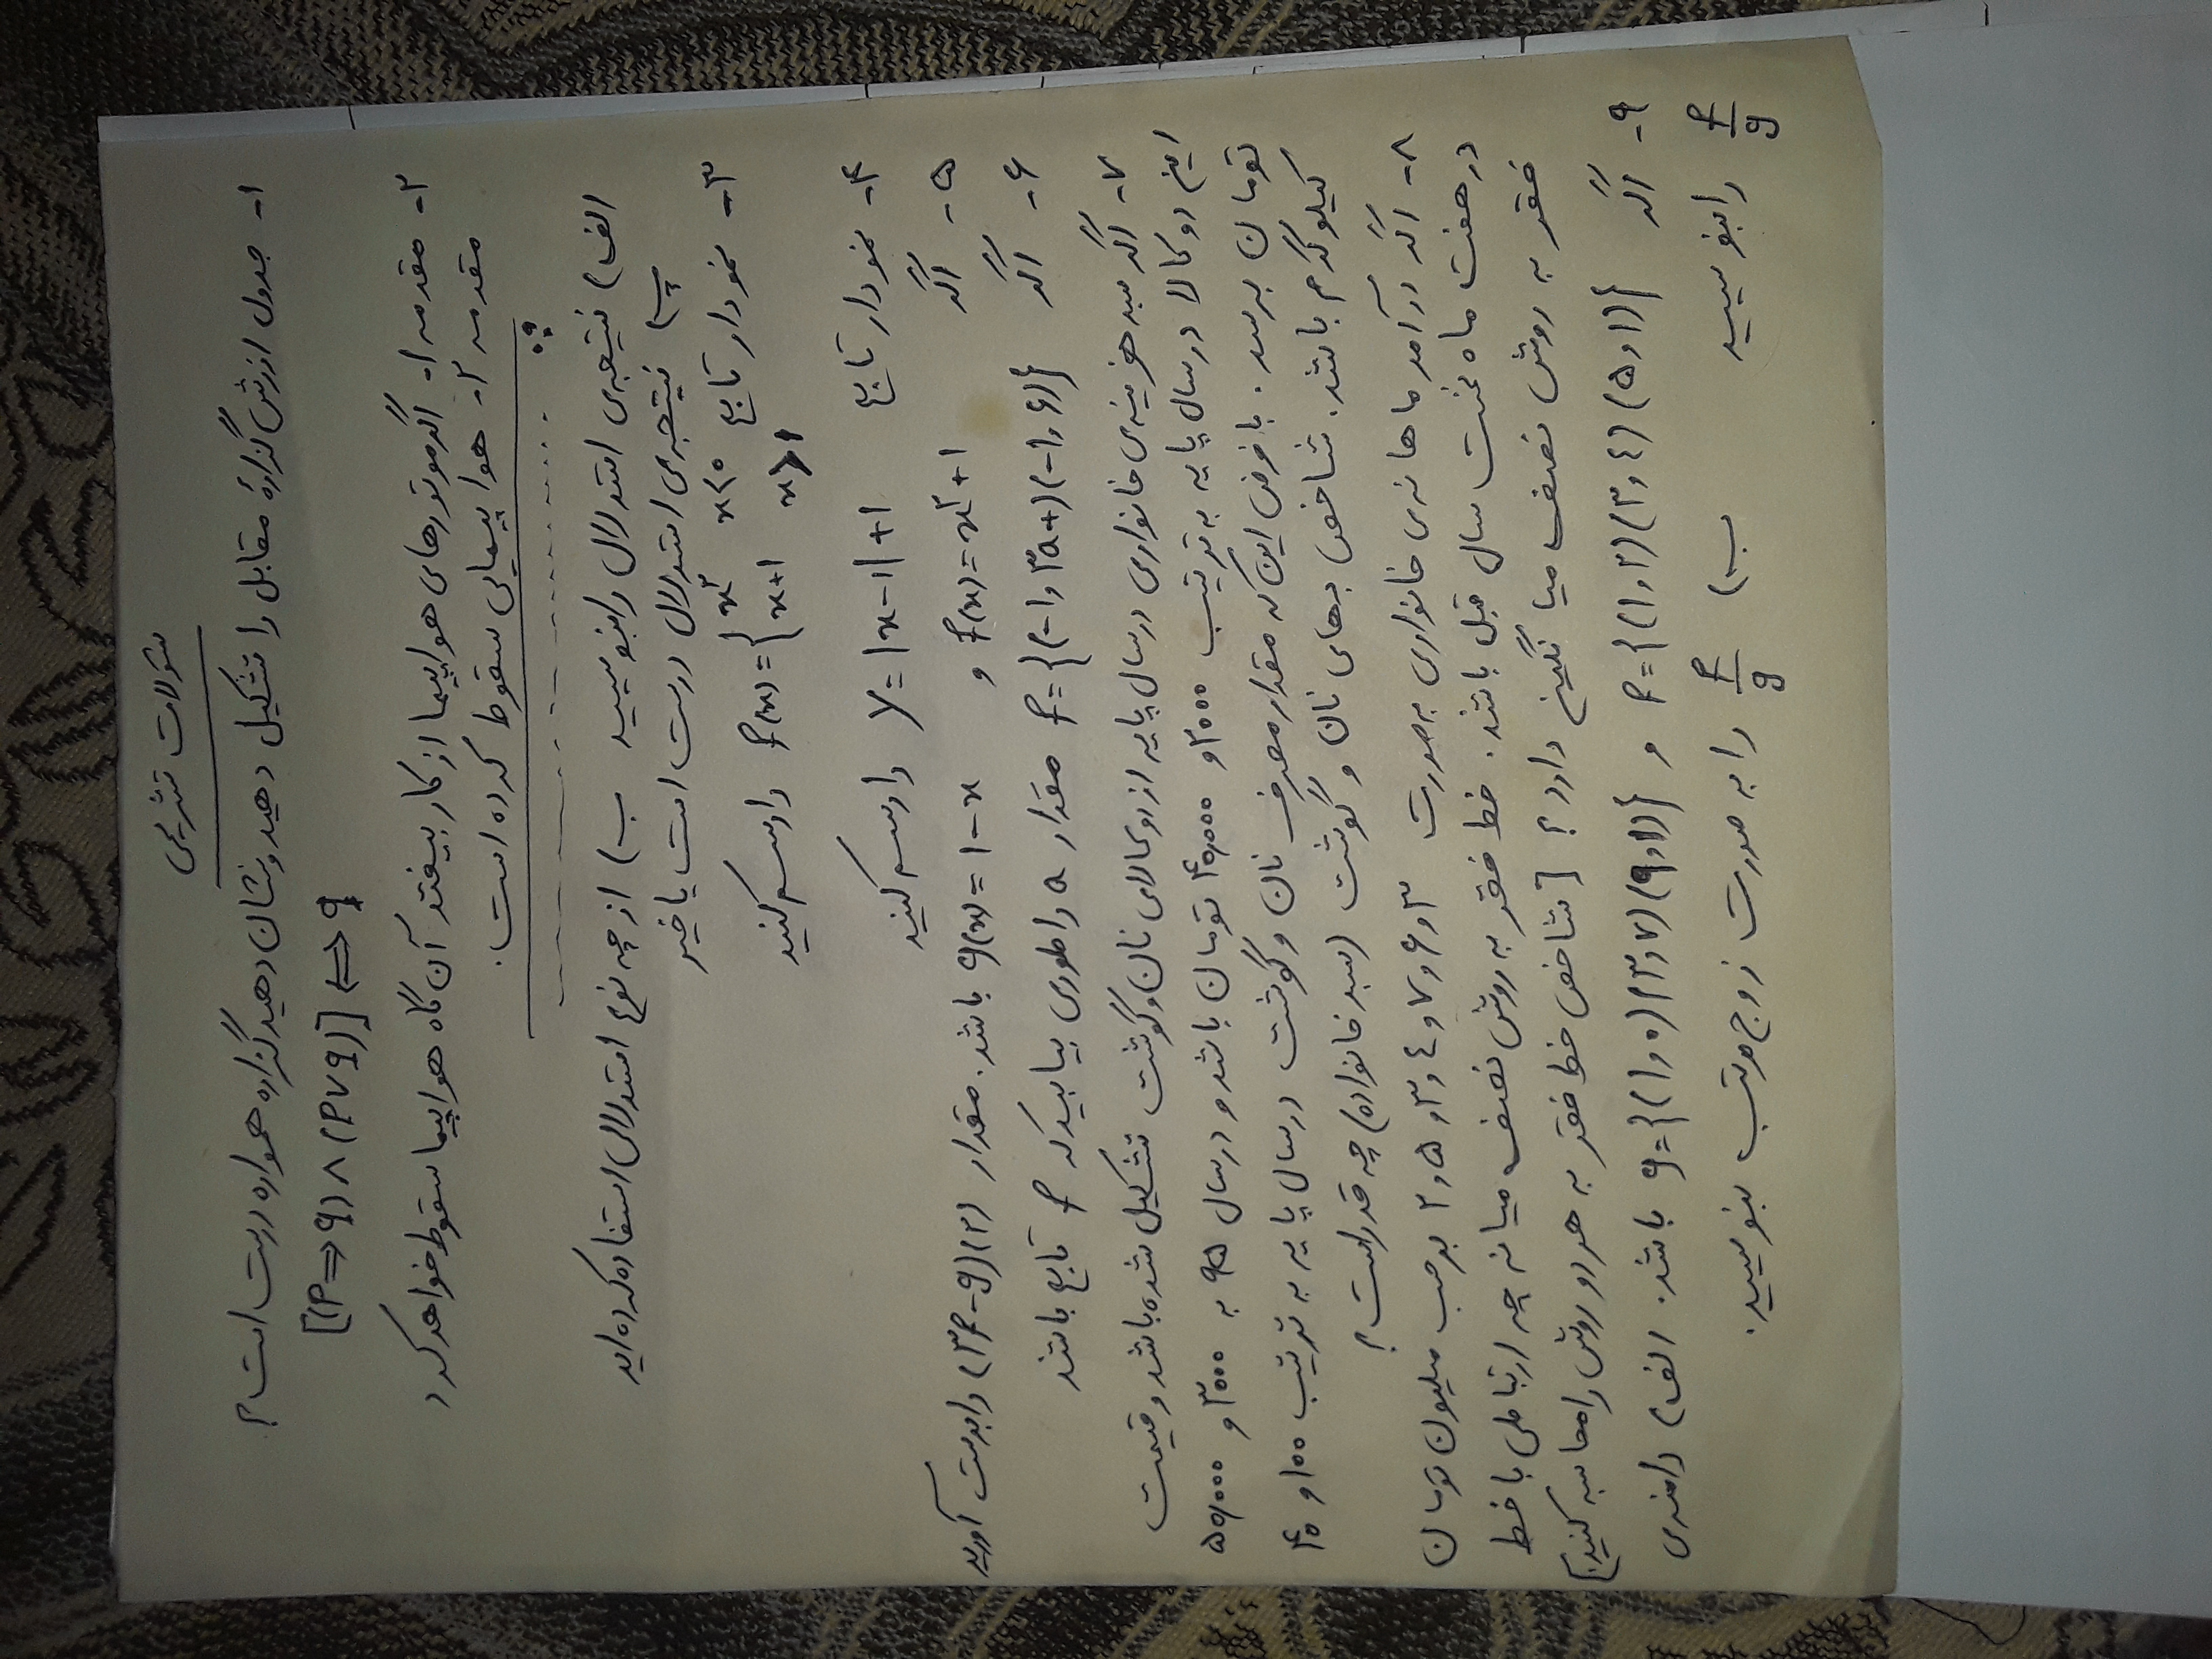 سئوالات تشریحی
۱- جدول ارزش گزارهٔ مقابل را تشکیل دهید و نشان دهید گزاره همواره درست است؟
[(P⇒q)∧(P∨q)]⇔q
۲- مقدمه ۱- اگر موتورهای هواپیما از کار بیفتد آن گاه هواپیما سقوط خواهد کرد
مقدمه ۲- هواپیمایی سقوط کرده است.
∴ ....................
الف) نتیجه‌ی استدلال را بنویسید ب) از چه نوع استدلالی استفاده کرده اید
پ) نتیجه‌ی استدلال درست است یا خیر
۳- نمودار تابع f(x)={x² x<0 x+1 x⩾1 را رسم کنید
۴- نمودار تابع y=|x-1|+1 را رسم کنید
۵- اگر f(x)=x²+1 و g(x)=1-x باشد. مقدار (۳f-g)(۲) را بدست آورید
۶- اگر f={(-۱,۳a+)(-۱,۶)} مقدار a را طوری بیابید که f تابع باشد
۷- اگر سبد هزینه‌ی خانواری در سال پایه از دو کالای نان و گوشت تشکیل شده باشد و قیمت
این دو کالا در سال پایه به ترتیب ۲۰۰۰ و ۴۰,۰۰۰ تومان باشد و در سال ۹۵ به ۳۰۰۰ و ۵۰,۰۰۰
تومان برسد. با فرض این که مقدار مصرف نان و گوشت در سال پایه به ترتیب ۱۰۰ و ۴۰
کیلوگرم باشد. شاخص بهای نان و گوشت (سبد خانواده) چه قدر است؟
۸- اگر درآمد ماهانه‌ی خانواری به صورت ۳ و ۶ و ۷ و ٤ و ۳ و ۵ و ۲ برحسب میلیون تومان
در هفت ماه نخست سال قبل باشد. خط فقر به روش نصف میانه چه ارتباطی با خط
فقر به روش نصف میانگین دارد؟ [شاخص خط فقر به هر دو روش را محاسبه کنید]
۹- اگر f={(۱,۲)(۳,٤)(۵,۱)} و g={(۱,۰)(۳,۷)(۹,۱)} باشد. الف) دامنه‌ی
f/g را بنویسید ب) f/g را به صورت زوج مرتب بنویسید.